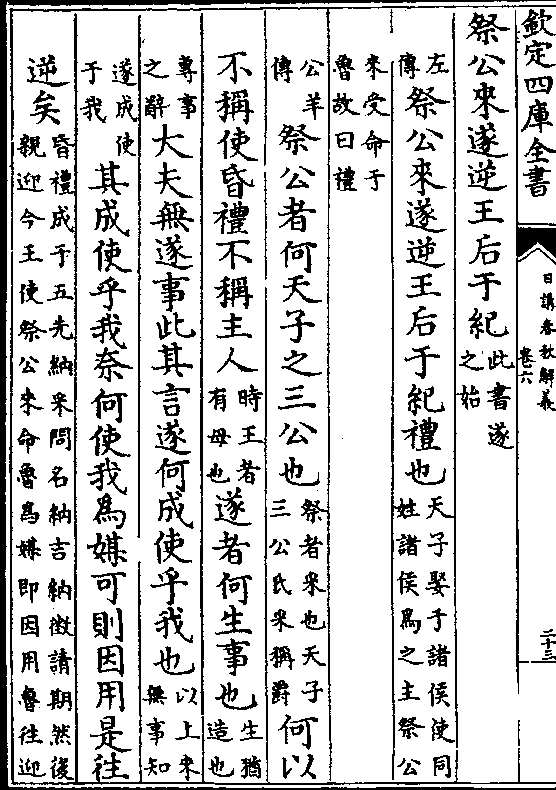 欽定四庫全書
日講春秋解義
卷六
二十三
祭公來遂逆王后于紀此書遂之始
左傳祭公來遂逆王后于紀禮也天子娶于諸侯使同姓諸侯為之主祭公
來受命于魯故曰禮
公羊傳祭公者何天子之三公也祭者采也天子三公氏采稱爵何以
不稱使昏禮不稱主人時王者有母也遂者何生事也生猶造也
專事之辭大夫無遂事此其言遂何成使乎我也以上來無事知
遂成使于我其成使乎我奈何使我為媒可則因用是往
逆矣昏禮成于五先納采問名納吉納徵請期然後親迎今王使祭公來命魯為媒即因用魯往迎